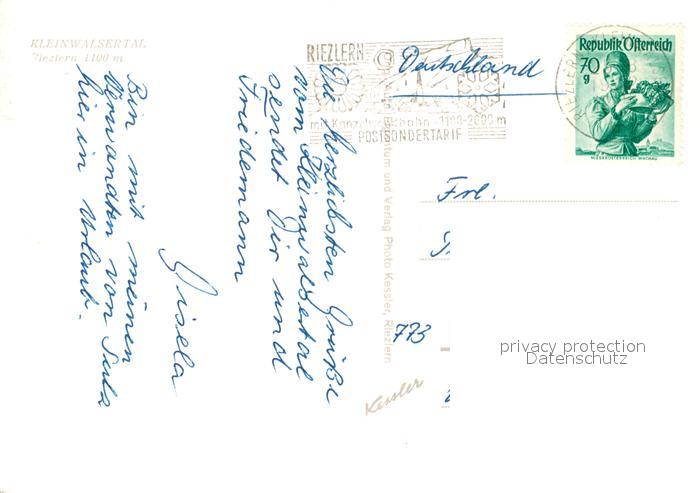 KLEINWALSERTAL
Riezlern 1100 m
RIEZLERN
mit Kanzelwandbahn 1100-2000 m
POSTSONDERTARIF
Deutschland
RIEZLERN
Republik Österreich
70
g
NIEDERÖSTERREICH WACHAU
Die herzlichsten Grüße
vom Kleinwalsertal
sendet Dir und
Friedemann
Gisela
Bin mit meinen
Verwandten von
hier in Urlaub.
und Verlag Photo Kessler, Riezlern
Kessler
Frl.
773
privacy protection
Datenschutz